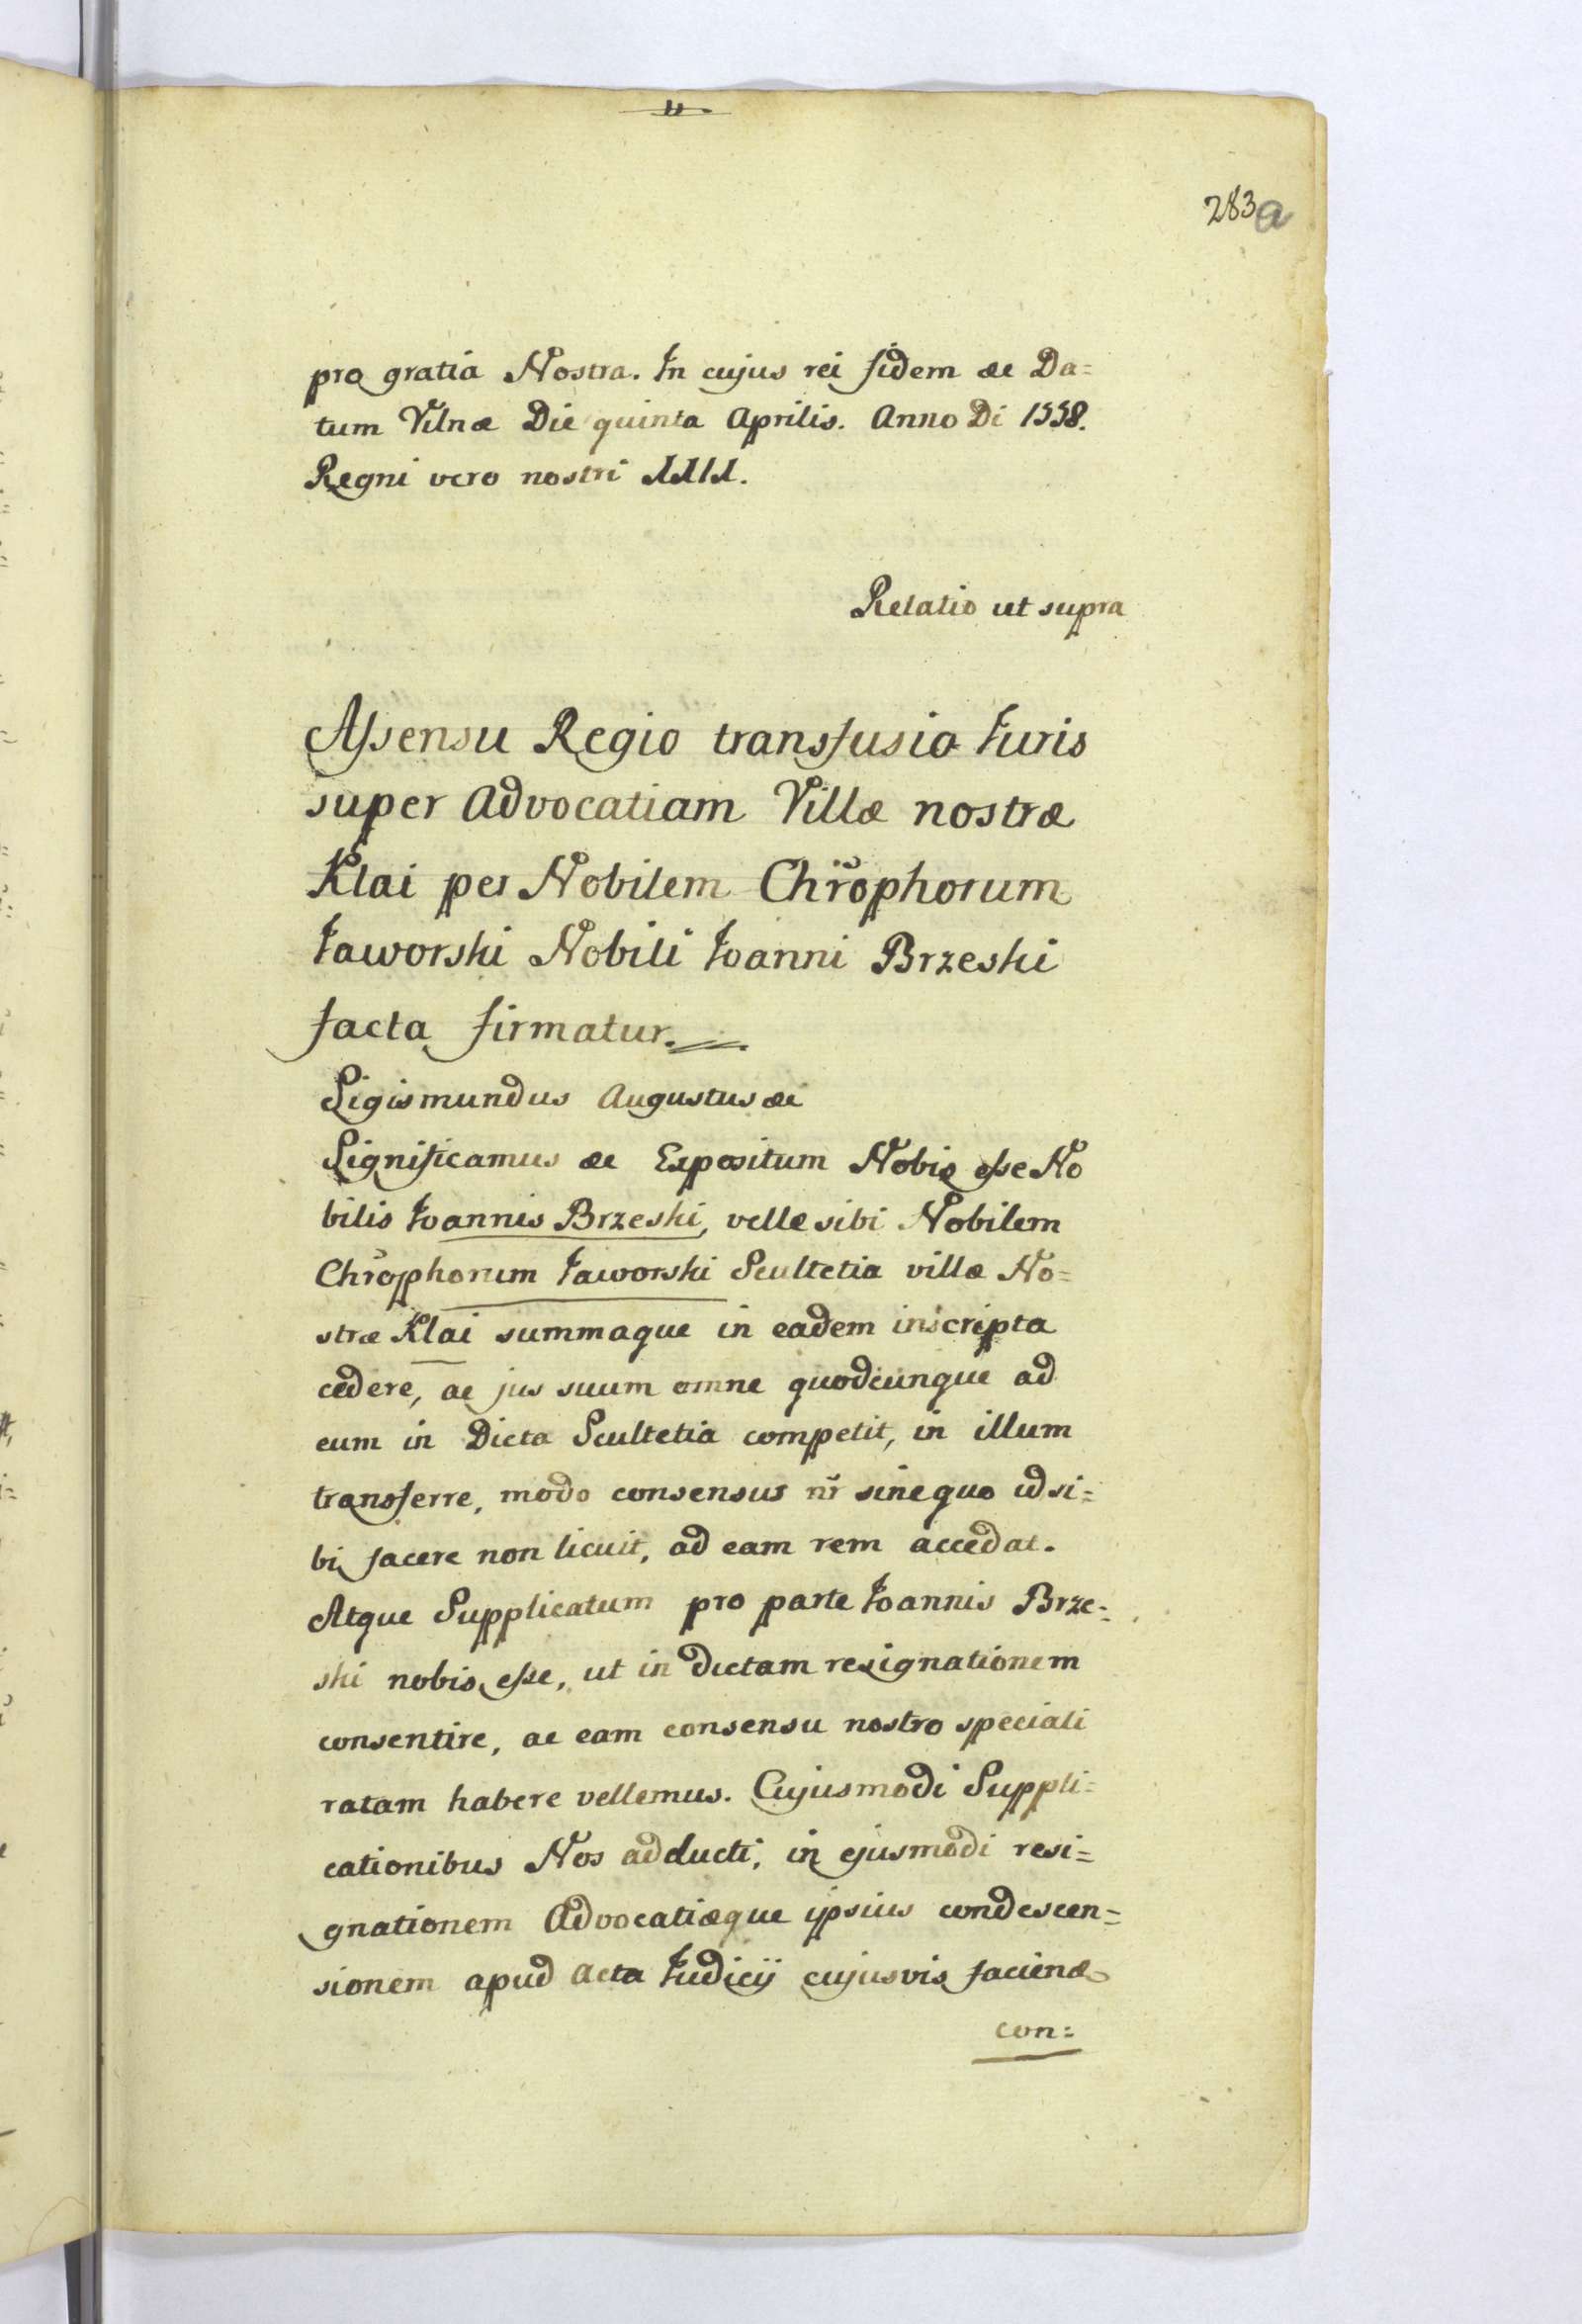 283 a
pro gratia Nostra. In cujus rei fidem æc Da=
tum Vilnæ Die quinta Aprilis. Anno Di 1558.
Regni vero nostri
Relatio ut supra
Assensu Regio transfusio Iuris
super Advocatiam Villæ nostræ
Klai per Nobilem Chrõphorum
Iaworski Nobili Ioanni Brzeski
facta firmatur.
Sigismundus Augustus æc
Significamus æc Expositum Nobis esse No
bilis Ioannis Brzeski, velle sibi Nobilem
Chrõphorum Iaworski Scultetia villæ No=
stræ Klai summaque in eadem inscripta
cedere, ac jus suum omne quodcunque ad
eum in Dicta Scultetia competit, in illum
transferre, modo consensus nr̃ sine quo id si=
bi facere non licuit, ad eam rem accedat.
Atque Supplicatum pro parte Ioannis Brze=
ski nobis esse, ut in dictam resignationem
consentire, ac eam consensu nostro speciali
ratam habere vellemus. Cujusmodi Suppli=
cationibus Nos adducti, in ejusmodi resi=
gnationem Advocatiæque ipsius condescen=
sionem apud acta Iudicij cujusvis faciend
con=